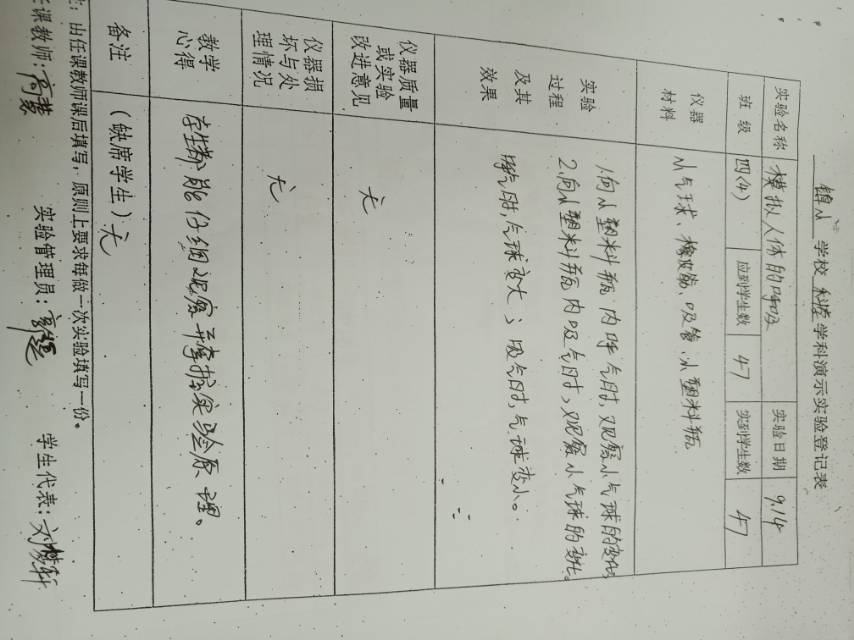 镇小 学校 科学 学科演示实验登记表
实验名称 模拟人体的呼吸 实验日期 9.14
班级 四(4) 应到学生数 47 实到学生数 47
仪器材料 小气球、橡皮筋、吸管、小塑料瓶
实验过程及其效果
1.向小塑料瓶内呼气时,观察小气球的变化
2.向小塑料瓶内吸气时,观察小气球的变化。
呼气时,气球变大;吸气时,气球变小。
仪器质量或实验改进意见 无
仪器损坏与处理情况 无
教学心得 学生都能仔细观察并掌握实验原理。
备注 (缺席学生)无
:由任课教师课后填写,原则上要求每做一次实验填写一份。
任课教师: 实验管理员: 学生代表:刘梦轩